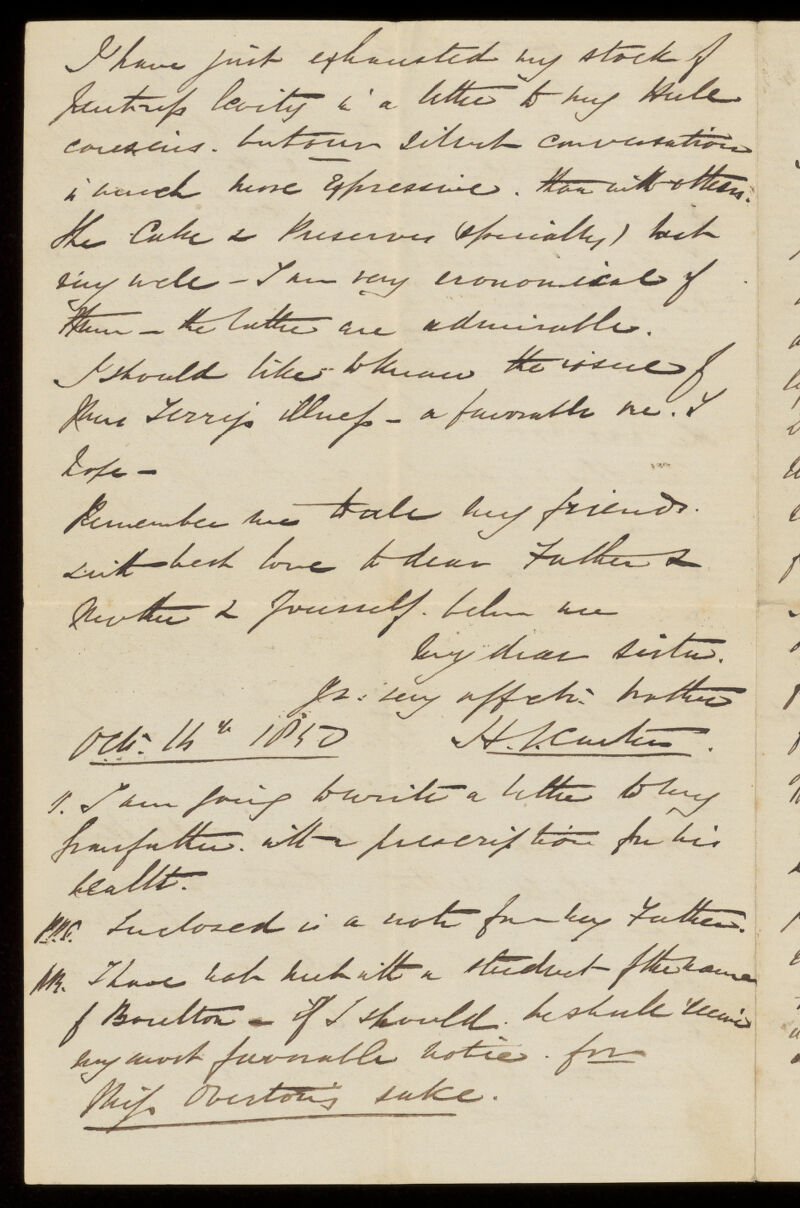 I have just exhausted my stock of
levity in a letter to my Hull
cousins. but our silent conversation
is much more Expressive. than with others.
the Cake & Preserves (specially) last
very well – I am very economical of
them – the latter are admirable.
I should like to know the issue of
Terry's illness – a favorable one. I
hope –
Remember me to all my friends.
with best love to dear Father &
Mother & Yourself. believe me
my dear Sister.
Yr: very affecte: brother
Octr. 14th 1850 H. V. Carter.
P. I am going to write a letter to my
Grandfather. with a prescription for his
health.
P.P.S. Inclosed is a note for my Father.
I have not met with a student of the name
of Boulton – if I should. he shall receive
my most favorable notice. for
Miss Overton's sake.